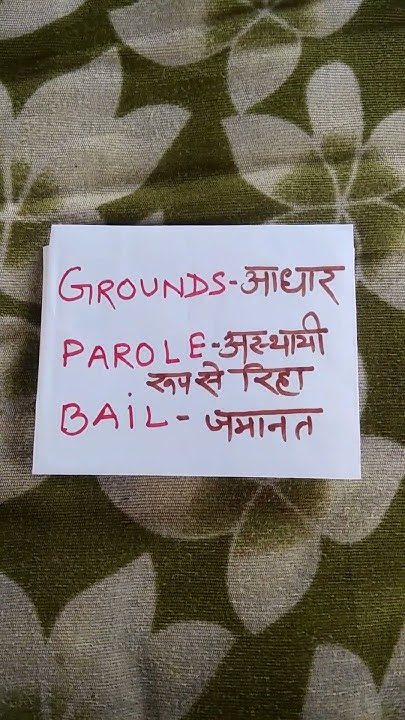 GROUNDS-आधार
PAROLE-अस्थायी
रूप से रिहा
BAiL - जमानत